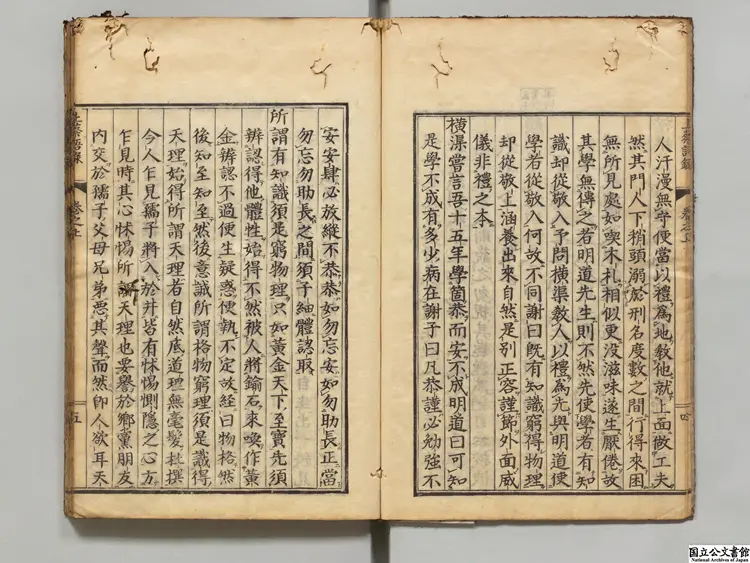 上蔡語錄
卷之上
四
人汗漫無守便當以禮爲地教他就上面做工夫
然其門人下稍頭溺於刑名度數之間行得來困
無所見處如喫木札相似更沒滋味遂生厭倦故
其學無傳之者明道先生則不然先使學者有知
識却從敬入予問橫渠教人以禮爲先與明道使
學者從敬入何故不同謝曰旣有知識窮得物理
却從敬上涵養出來自然是別正容謹節外面威
儀非禮之本
橫渠嘗言吾十五年學箇恭而安不成明道曰可知
是學不成有多少病在謝子曰凡恭謹必勉强不
安安肆必放縱不恭恭如勿忘安如勿助長正當
勿忘勿助長之間須子細體認取
所謂有知識須是窮物理只如黃金天下至寶先須
辨認得他體性始得不然被人將鍮石來喚作黃
金辨認不過便生疑惑便執不定故經曰物格然
後知至知至然後意誠所謂格物窮理須是識得
天理始得所謂天理者自然底道理無毫髮杜撰
今人乍見孺子將入於井皆有怵惕惻隱之心方
乍見時其心怵惕所謂天理也要譽於鄕黨朋友
內交於孺子父母兄弟惡其聲而然卽人欲耳天
上蔡語錄
卷之上
五
国立公文書館
National Archives of Japan